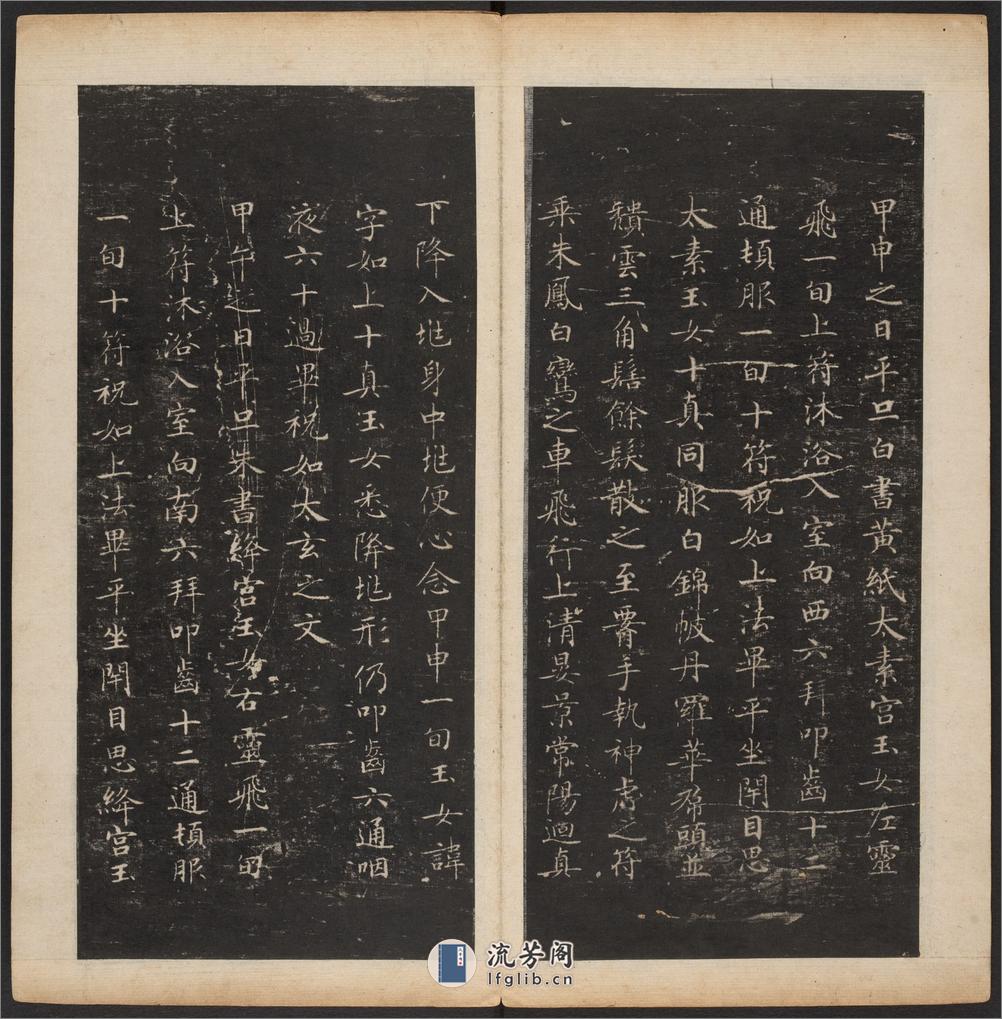 甲申之日平旦白書黃紙太素宮玉女左靈
飛一旬上符沐浴入室向西六拜叩齒十二
通頓服一旬十符祝如上法畢平坐閇目思
太素玉女十真同服白錦帔丹羅華帬頭並
穨雲三角髻餘髮散之至𦝫手執神虎之符
乗朱鳳白鸞之車飛行上清晏景常陽迴真
下降入𡊮身中𡊮便心念甲申一旬玉女諱
字如上十真玉女悉降𡊮形仍叩齒六通咽
液六十過畢祝如太玄之文
甲午之日平旦朱書絳宮玉女右靈飛一旬
上符沐浴入室向南六拜叩齒十二通頓服
一旬十符祝如上法畢平坐閇目思絳宮玉
流芳阁
lfglib.cn